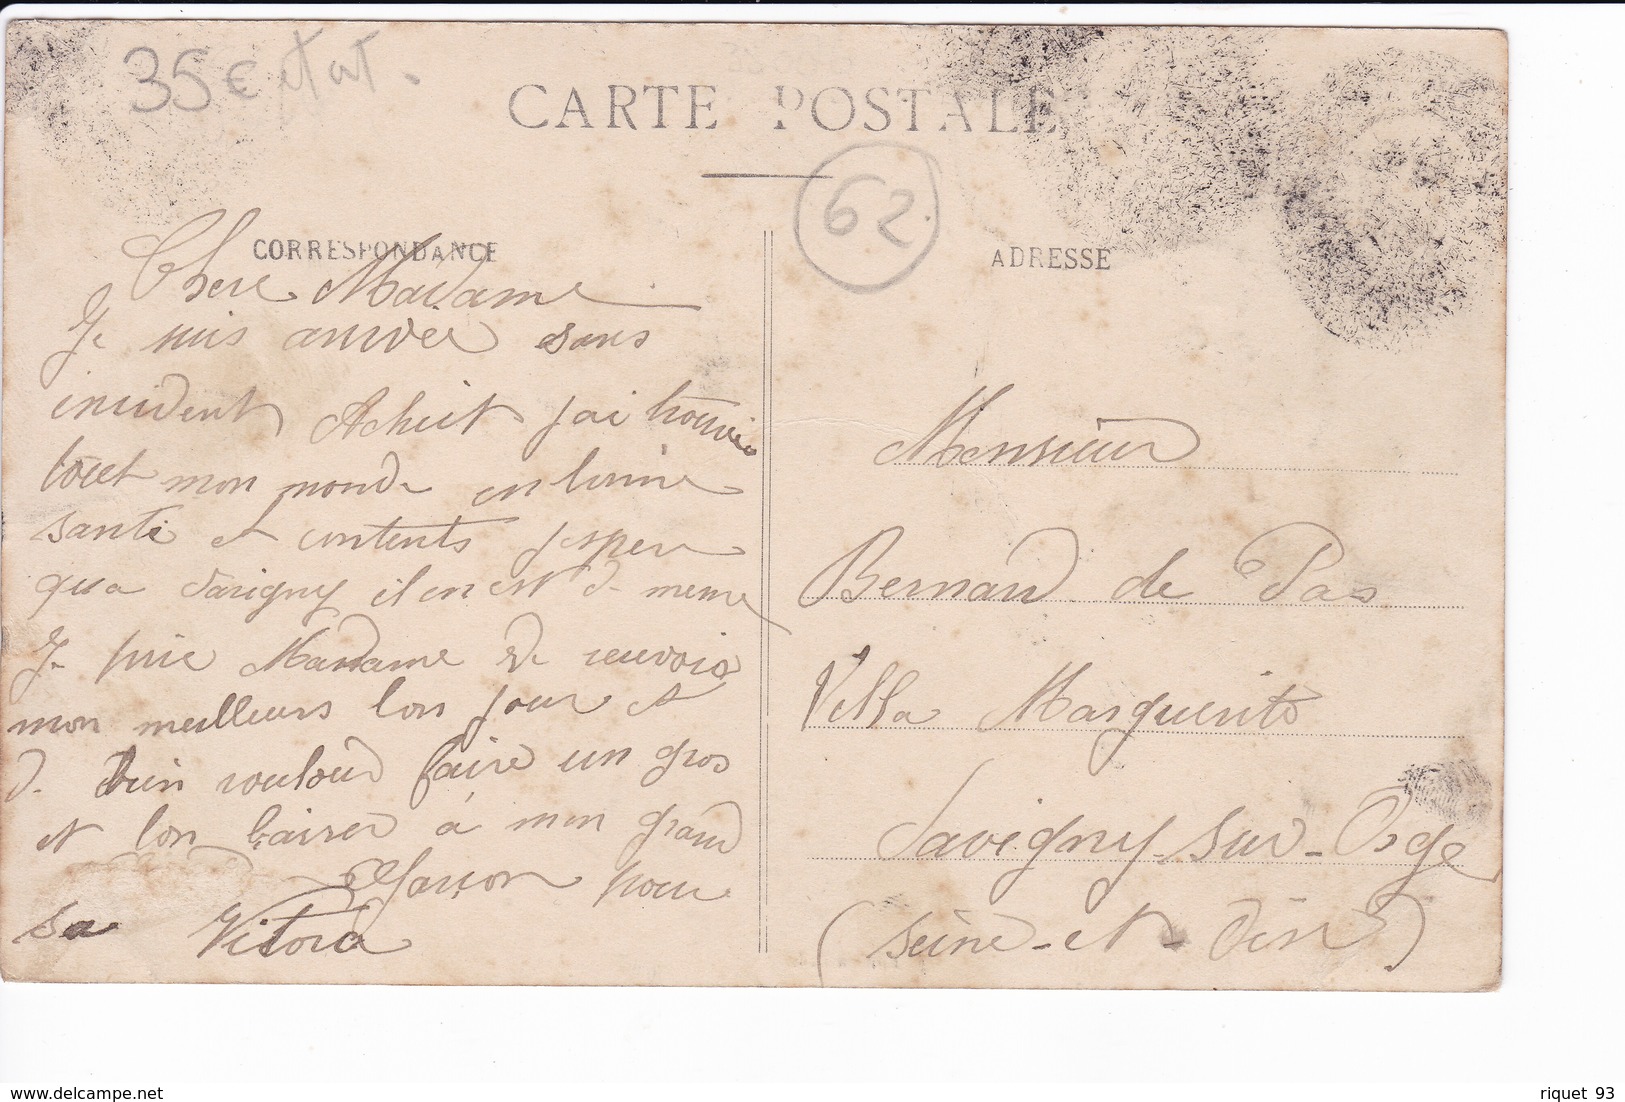 35€ état.
CARTE POSTALE
62
CORRESPONDANCE
Chere Madame
Je suis arrivée sans
incident Achiet jai trouvé
tout mon monde en bonne
santé et contents jespere
qua Savigny il en est de meme
Je prie Madame de recevois
mon meilleurs bon jour et
de bien vouloud faire un gros
et bon baiser a mon grand
Garçon pour
sa Vitora
ADRESSE
Monsieur
Bernard de Pas
Villa Marguerite
Savigny-sur-Orge
(Seine-et-Oise)
riquet 93